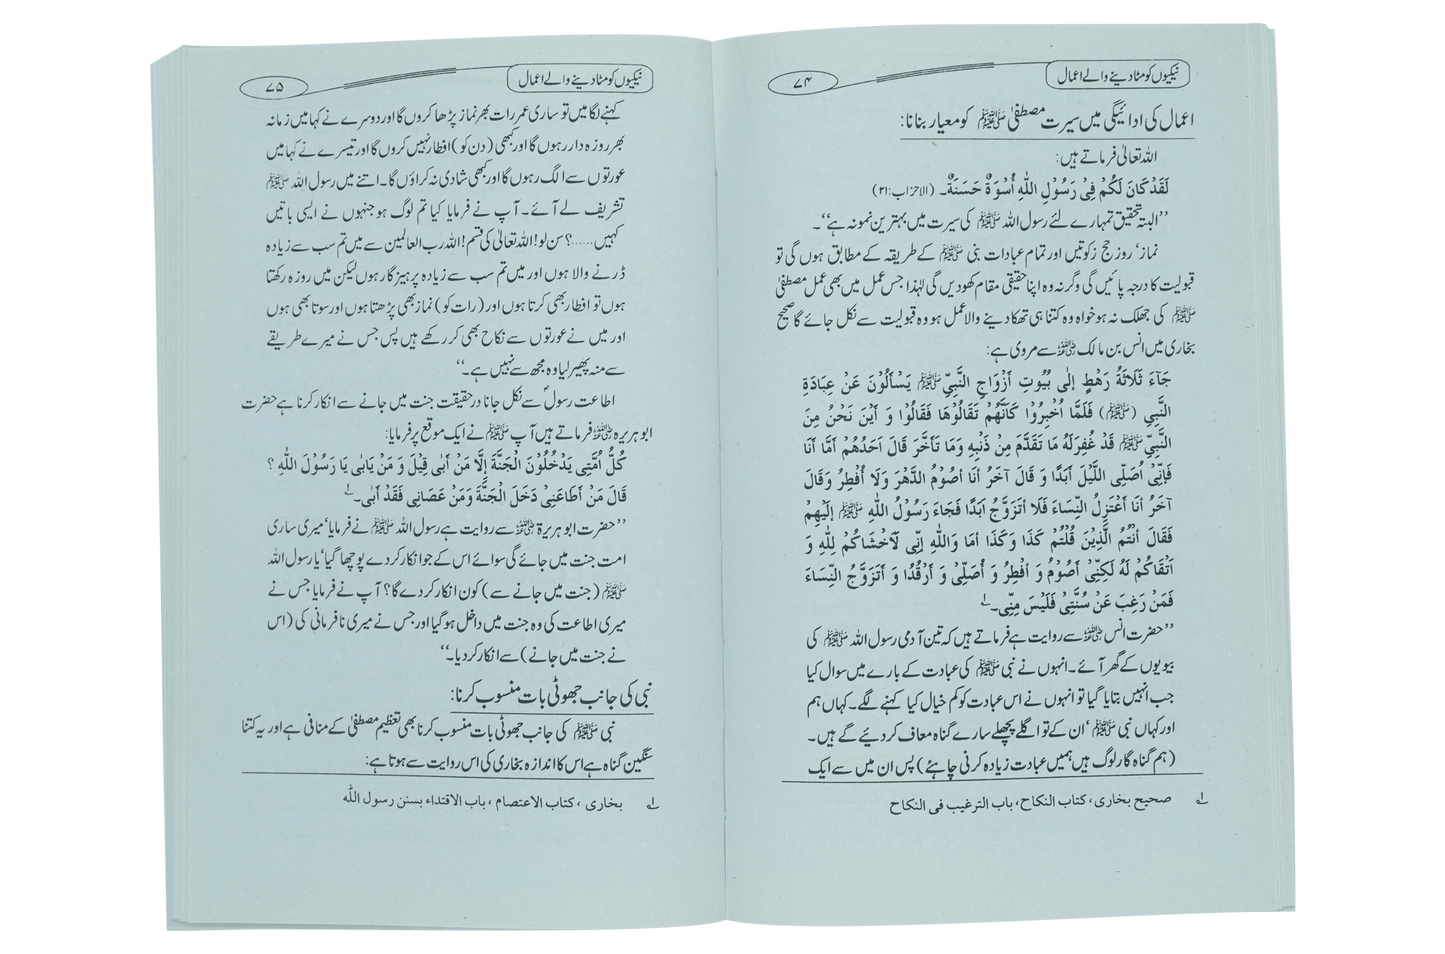 نیکیوں کو مٹا دینے والے اعمال
۷۴
اعمال کی ادائیگی میں سیرت مصطفیٰ ﷺ کو معیار بنانا:
اللہ تعالیٰ فرماتے ہیں:
لَقَدْ كَانَ لَكُمْ فِىْ رَسُوْلِ اللّٰهِ اُسْوَةٌ حَسَنَةٌ۔ (الاحزاب:۲۱)
’’البتہ تحقیق تمہارے لئے رسول اللہ ﷺ کی سیرت میں بہترین نمونہ ہے‘‘۔
نماز‘ روزہ حج زکوتیں اور تمام عبادات بنی ﷺ کے طریقہ کے مطابق ہوں گی تو
قبولیت کا درجہ پائیں گی وگرنہ وہ اپنا حقیقی مقام کھودیں گی لہٰذا جس عمل میں بھی عمل مصطفیٰ
ﷺ کی جھلک نہ ہو خواہ وہ کتنا ہی تھکا دینے والا عمل ہو وہ قبولیت سے نکل جائے گا صحیح
بخاری میں انس بن مالک ؓ سے مروی ہے:
جَآءَ ثَلَاثَةُ رَهْطٍ إِلٰى بُيُوْتِ اَزْوَاجِ النَّبِىِّ ﷺ يَسْأَلُوْنَ عَنْ عِبَادَةِ
النَّبِى (ﷺ) فَلَمَّا اُخْبِرُوْا كَاَنَّهُمْ تَقَالُوْهَا فَقَالُوْا وَ اَيْنَ نَحْنُ مِنَ
النَّبِىِّ ﷺ قَدْ غُفِرَلَهُ مَا تَقَدَّمَ مِنْ ذَنْبِهٖ وَمَا تَأَخَّرَ قَالَ اَحَدُهُمْ اَمَّا اَنَا
فَاِنِّىْ اُصَلِّى اللَّيْلَ اَبَدًا وَ قَالَ آخَرُ اَنَا اَصُوْمُ الدَّهْرَ وَلَا اُفْطِرُ وَقَالَ
آخَرُ اَنَا اَعْتَزِلُ النِّسَاءَ فَلَا اَتَزَوَّجُ اَبَدًا فَجَاءَ رَسُوْلُ اللّٰهِ ﷺ اِلَيْهِمْ
فَقَالَ اَنْتُمُ الَّذِيْنَ قُلْتُمْ كَذَا وَكَذَا اَمَا وَاللّٰهِ اِنِّى لَاَخْشَاكُمْ لِلّٰهِ وَ
اَتْقَاكُمْ لَهُ لَكِنِّىْ اَصُوْمُ وَ اُفْطِرُ وَ اُصَلِّىْ وَ اَرْقُدُ وَ اَتَزَوَّجُ النِّسَاءَ
فَمَنْ رَغِبَ عَنْ سُنَّتِىْ فَلَيْسَ مِنِّى۔ ۱
’’حضرت انس ؓ سے روایت ہے فرماتے ہیں کہ تین آدمی رسول اللہ ﷺ کی
بیویوں کے گھر آئے۔ انہوں نے نبی ﷺ کی عبادت کے بارے میں سوال کیا
جب انہیں بتایا گیا تو انہوں نے اس عبادت کو کم خیال کیا کہنے لگے۔ کہاں ہم
اور کہاں نبی ﷺ‘ ان کے تو اگلے پچھلے سارے گناہ معاف کر دئیے گے ہیں۔
(ہم گناہ گار لوگ ہیں ہمیں عبادت زیادہ کرنی چاہئے) پس ان میں سے ایک
۱ صحیح بخاری، کتاب النکاح، باب الترغیب فی النکاح
نیکیوں کو مٹا دینے والے اعمال
۷۵
کہنے لگا میں تو ساری عمر رات بھر نماز پڑھا کروں گا اور دوسرے نے کہا میں زمانہ
بھر روزہ دار رہوں گا اور کبھی (دن کو) افطار نہیں کروں گا اور تیسرے نے کہا میں
عورتوں سے الگ رہوں گا اور کبھی شادی نہ کراؤں گا۔ اتنے میں رسول اللہ ﷺ
تشریف لے آئے۔ آپ نے فرمایا کیا تم لوگ ہو جنہوں نے ایسی باتیں
کہیں......؟ سن لو! اللہ تعالیٰ کی قسم! اللہ رب العالمین سے میں تم سب سے زیادہ
ڈرنے والا ہوں اور میں تم سب سے زیادہ پرہیز گار ہوں لیکن میں روزہ رکھتا
ہوں تو افطار بھی کرتا ہوں اور (رات کو) نماز بھی پڑھتا ہوں اور سوتا بھی ہوں
اور میں نے عورتوں سے نکاح بھی کر رکھے ہیں پس جس نے میرے طریقے
سے منہ پھیر لیا وہ مجھ سے نہیں ہے۔‘‘
اطاعت رسولؐ سے نکل جانا درحقیقت جنت میں جانے سے انکار کرنا ہے حضرت
ابو ہریرہ ؓ فرماتے ہیں آپ ﷺ نے ایک موقع پر فرمایا:
كُلُّ اُمَّتِى يَدْخُلُوْنَ الْجَنَّةَ اِلَّا مَنْ اَبٰى قِيْلَ وَ مَنْ يَابٰى يَا رَسُوْلَ اللّٰهِ ؟
قَالَ مَنْ اَطَاعَنِىْ دَخَلَ الْجَنَّةَ وَمَنْ عَصَانِى فَقَدْ اَبٰى۔ ۱
’’حضرت ابو ہریرۃ ؓ سے روایت ہے رسول اللہ ﷺ نے فرمایا‘ میری ساری
امت جنت میں جائے گی سوائے اس کے جو انکار کر دے پوچھا گیا‘ یا رسول اللہ
ﷺ (جنت میں جانے سے) کون انکار کر دے گا؟ آپ نے فرمایا جس نے
میری اطاعت کی وہ جنت میں داخل ہو گیا اور جس نے میری نافرمانی کی (اس
نے جنت میں جانے) سے انکار کر دیا۔‘‘
نبی کی جانب جھوٹی بات منسوب کرنا:
نبی ﷺ کی جانب جھوٹی بات منسوب کرنا بھی تعظیم مصطفیٰ کے منافی ہے اور یہ کتنا
سنگین گناہ ہے اس کا اندازہ بخاری کی اس روایت سے ہوتا ہے:
۱ بخاری، کتاب الاعتصام، باب الاقتداء بسنن رسول اللّٰہ